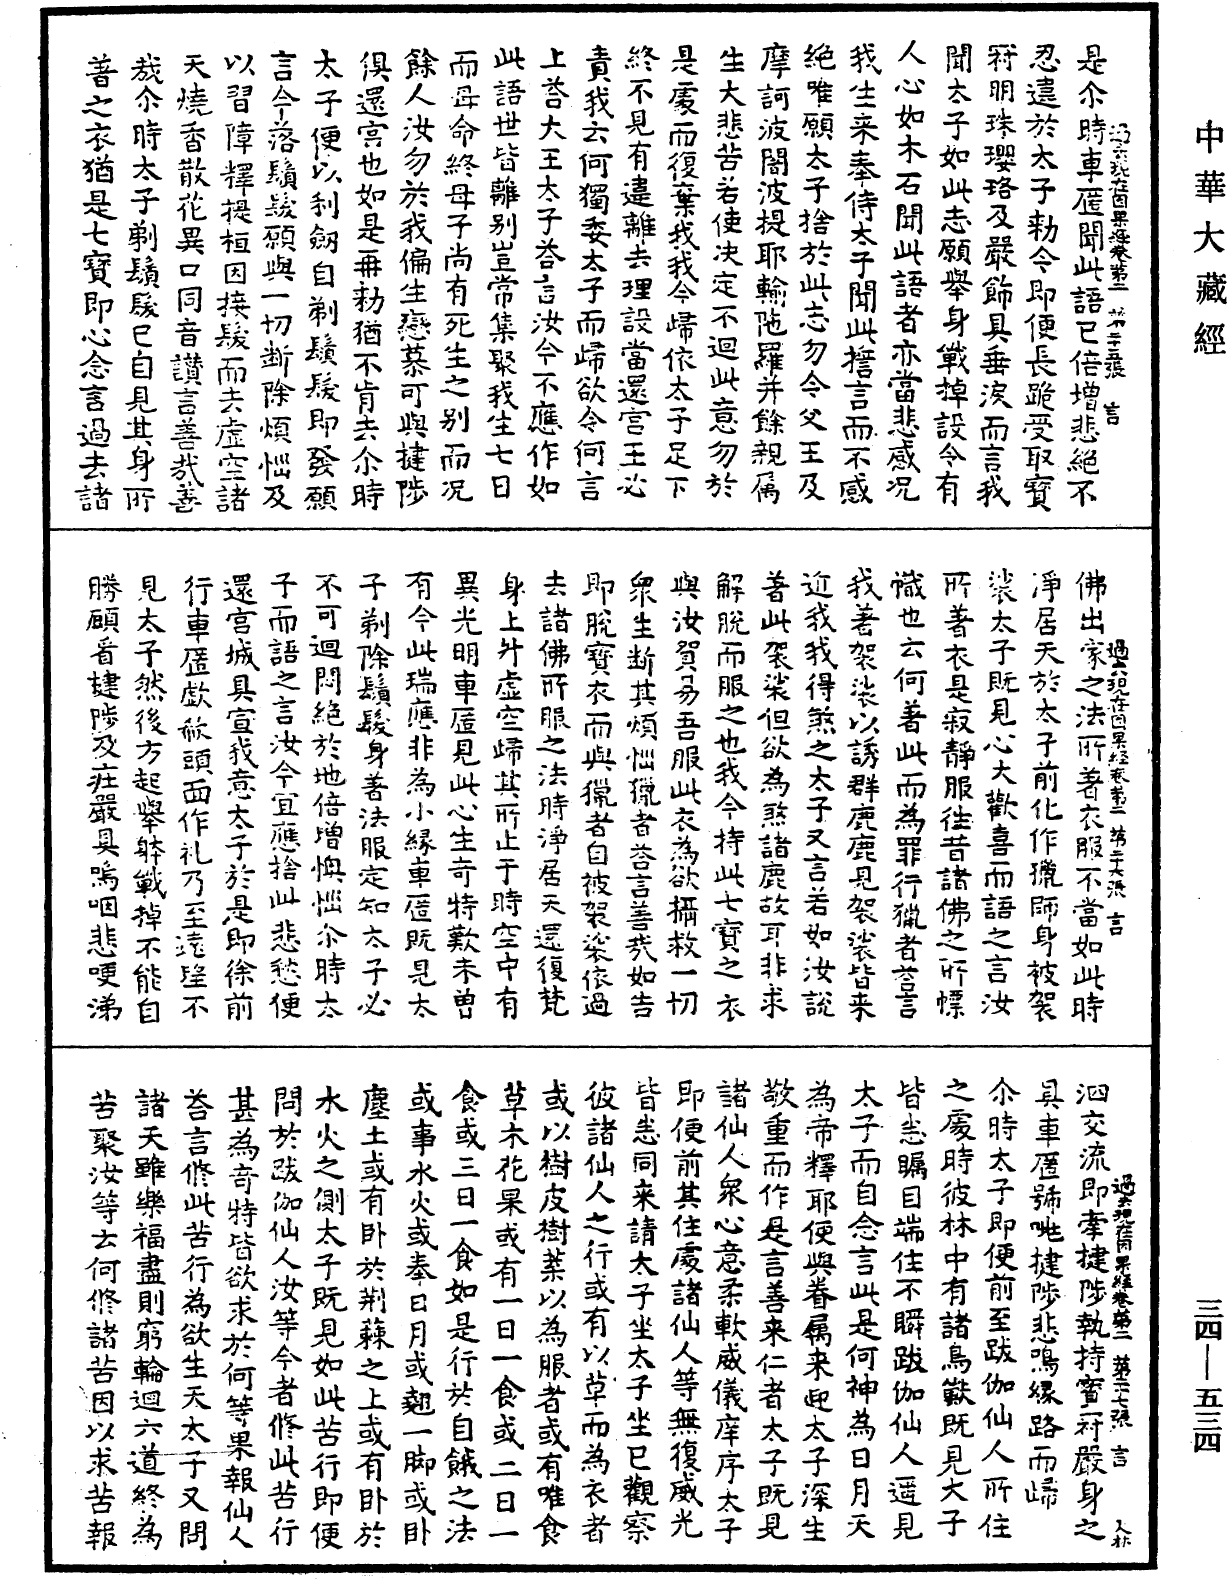 中華大藏經
是尒時車匿聞此語已倍增悲絕不
忍違於太子勑令即便長跪受取寶
冠明珠瓔珞及嚴飾具垂淚而言我
聞太子如此志願舉身戰掉設令有
人心如木石聞此語者亦當悲感況
我生来奉侍太子聞此擔言而不感
絕唯願太子捨於此志勿令父王及
摩訶波闍波提耶輸陁羅并餘親属
生大悲苦若使决定不迴此意勿於
是處而復棄我我今歸依太子足下
終不見有違離去理設當還宮王必
責我云何獨委太子而歸欲令何言
上荅大王太子荅言汝今不應作如
此語世皆離别豈常集聚我生七日
而母命終母子尚有死生之别而況
餘人汝勿於我偏生戀慕可與揵陟
俱還宮也如是再勑猶不肯去尒時
太子便以利劒自剃鬚髮即發願
言今落鬚髮願與一切断除煩惱及
以習障釋提桓因接髮而去虛空諸
天燒香散花異口同音讚言善哉善
哉尒時太子剃鬚髮已自見其身所
著之衣猶是七寶即心念言過去諸
過去現在因果經卷第二 第二十六張 言
佛出家之法所著衣服不當如此時
淨居天於太子前化作獵師身被袈
裟太子既見心大歡喜而語之言汝
所著衣是寂靜服徃昔諸佛之所幖
幟也云何著此而為罪行獵者荅言
我著袈裟以誘群鹿鹿見袈裟皆来
近我我得煞之太子又言若如汝說
著此袈裟但欲為煞諸鹿故耳非求
解脫而服之也我今持此七寶之衣
與汝貿易吾服此衣為欲攝救一切
衆生斷其煩惱獵者荅言善哉如告
即脫寶衣而與獵者自被袈裟依過
去諸佛所服之法時淨居天還復梵
身上升虛空歸其所止于時空中有
異光明車匿見此心生奇特歎未曽
有今此瑞應非為小緣車匿既見太
子剃除鬚髮身著法服定知太子必
不可迴悶絕於地倍增懊惱尒時太
子而語之言汝今宜應捨此悲愁便
還宮城具宣我意太子於是即徐前
行車匿歔欷頭面作礼乃至遠望不
見太子然後方起舉躰戰掉不能自
勝顧看揵陟及莊嚴具嗚咽悲哽涕
過去現在因果經卷第二 第二十七張 言
泗交流即牽揵陟執持寶冠嚴身之
具車匿號咷揵陟悲鳴緣路而歸
尒時太子即便前至跋伽仙人所住
之處時彼林中有諸鳥獸既見太子
皆悉矚目端住不瞬跋伽仙人遥見
太子而自念言此是何神為日月天
為帝釋耶便與眷属来迎太子深生
敬重而作是言善来仁者太子既見
諸仙人衆心意柔軟威儀庠序太子
即便前其住處諸仙人等無復威光
皆悉同来請太子坐太子坐已觀察
彼諸仙人之行或有以草而為衣者
或以樹皮樹葉以為服者或有唯食
草木花果或有一日一食或二日一
食或三日一食如是行於自餓之法
或事水火或奉日月或翹一脚或卧
塵土或有卧於荆蕀之上或有卧於
水火之側太子既見如此苦行即便
問於跋伽仙人汝等今者修此苦行
甚為奇特皆欲求於何等果報仙人
荅言修此苦行為欲生天太子又問
諸天雖樂福盡則窮輪迴六道終為
苦聚汝等云何修諸苦因以求苦報
三四—五三四